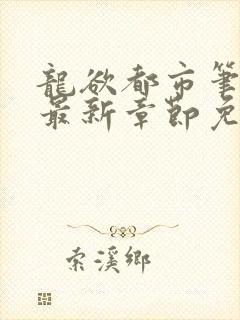 龍欲都市筆
最新章節免
索溪鄉